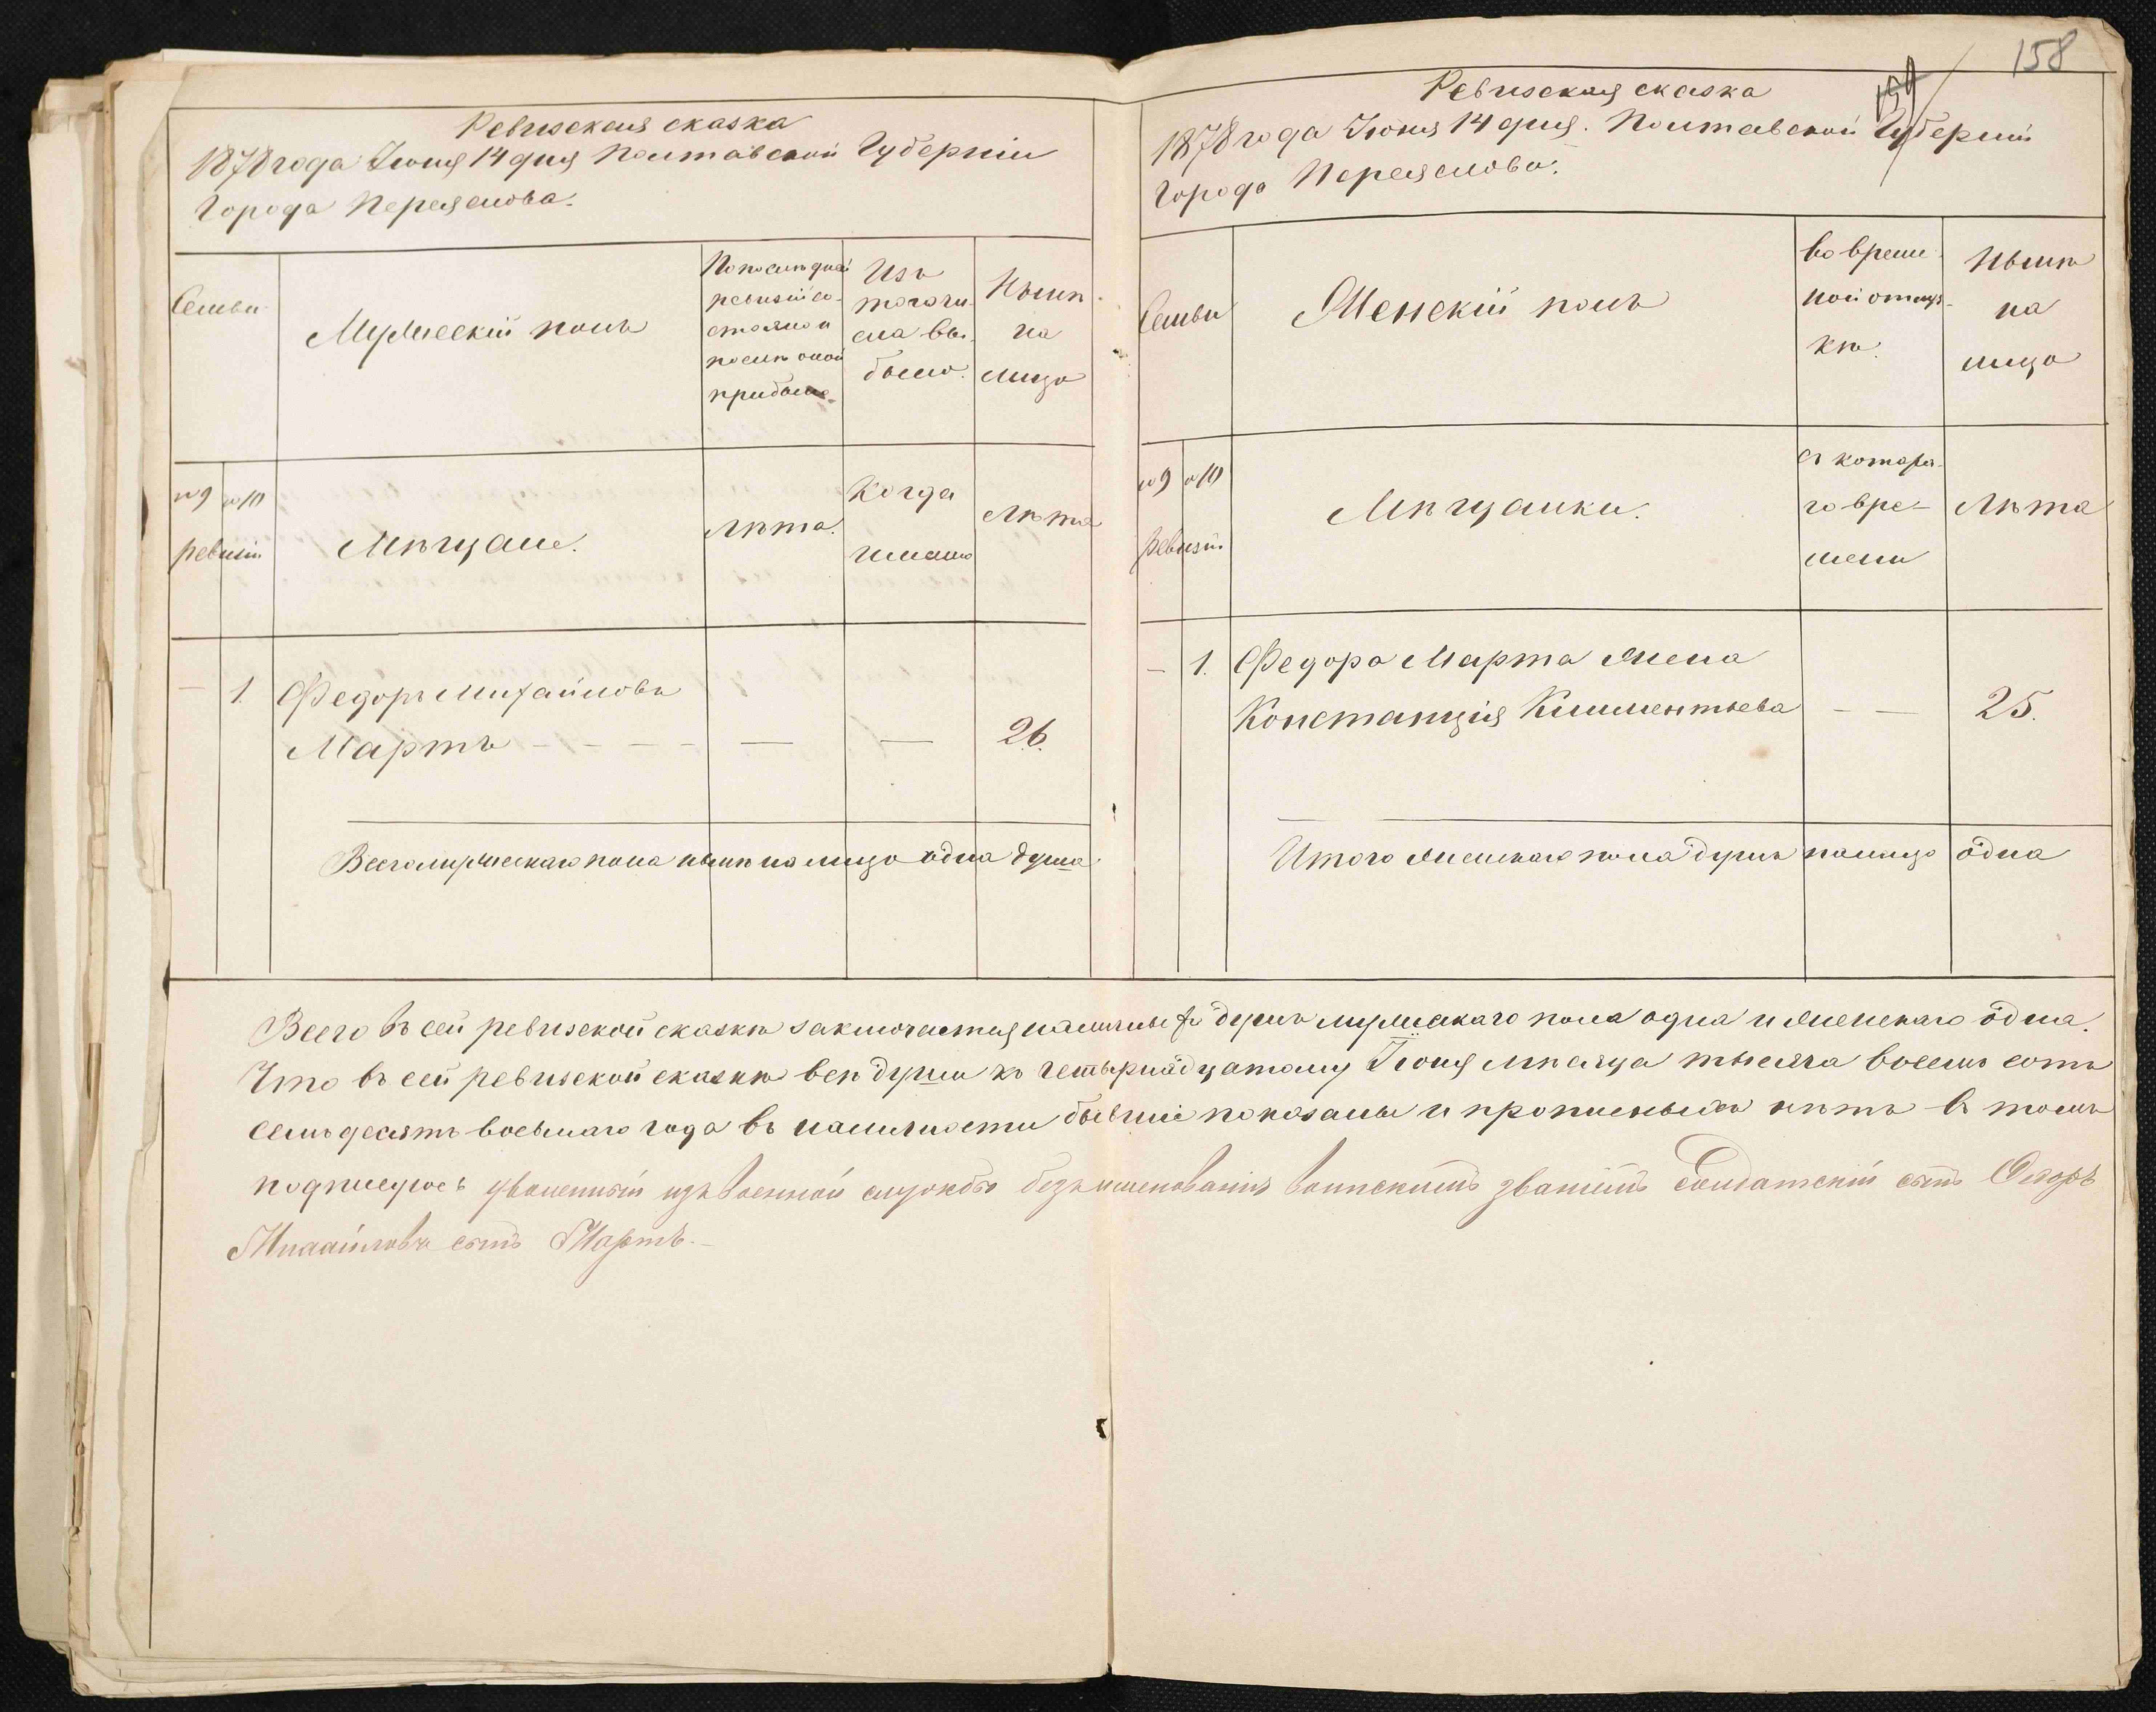 Ревизская сказка
1878 года Іюня 14 дня Полтавской Губерніи
Города Переяслова.
Семьи
Мужескій полъ
По последней
ревизіи со-
стояло и
после оной
прибыло
Изъ
того чи-
сла вы-
было.
Нынѣ
на
лицо
по 9 по 10
ревизіи
Мѣщане.
Лѣта.
Когда
именно
Лѣта
1. Федоръ Михайловъ
Мартъ - - - - — — 26.
Всего мужескаго пола нынѣ на лицо одна душа
158
159
Ревизская сказка
1878 года Іюня 14 дня. Полтавской Губерніи
Города Переяслова.
Семьи
Женскій полъ
Во време-
нной отлуч-
кѣ.
Нынѣ
на
лицо
по 9 по 10
ревизіи
Мѣщанки.
съ котора-
го вре-
мени
Лѣта
— 1. Федора Марта жена
Констанція Климентьева — — 25.
Итого женскаго пола душъ налицо одна
Всего въ сей ревизской сказкѣ заключается наличныхъ душъ мужескаго пола одна и женскаго одна.
Что въ сей ревизской сказкѣ всѣ души къ четырнадцатому Іюня мѣсяца тысяча восемь сотъ
семьдесятъ восьмаго года въ наличности бывшіе показаны и прописныхъ нѣтъ въ томъ
подписуюсь уволенный изъ военной службы безъ именованія воинскимъ званіемъ Солдатскій сынъ Федоръ
Михайловъ сынъ Мартъ.